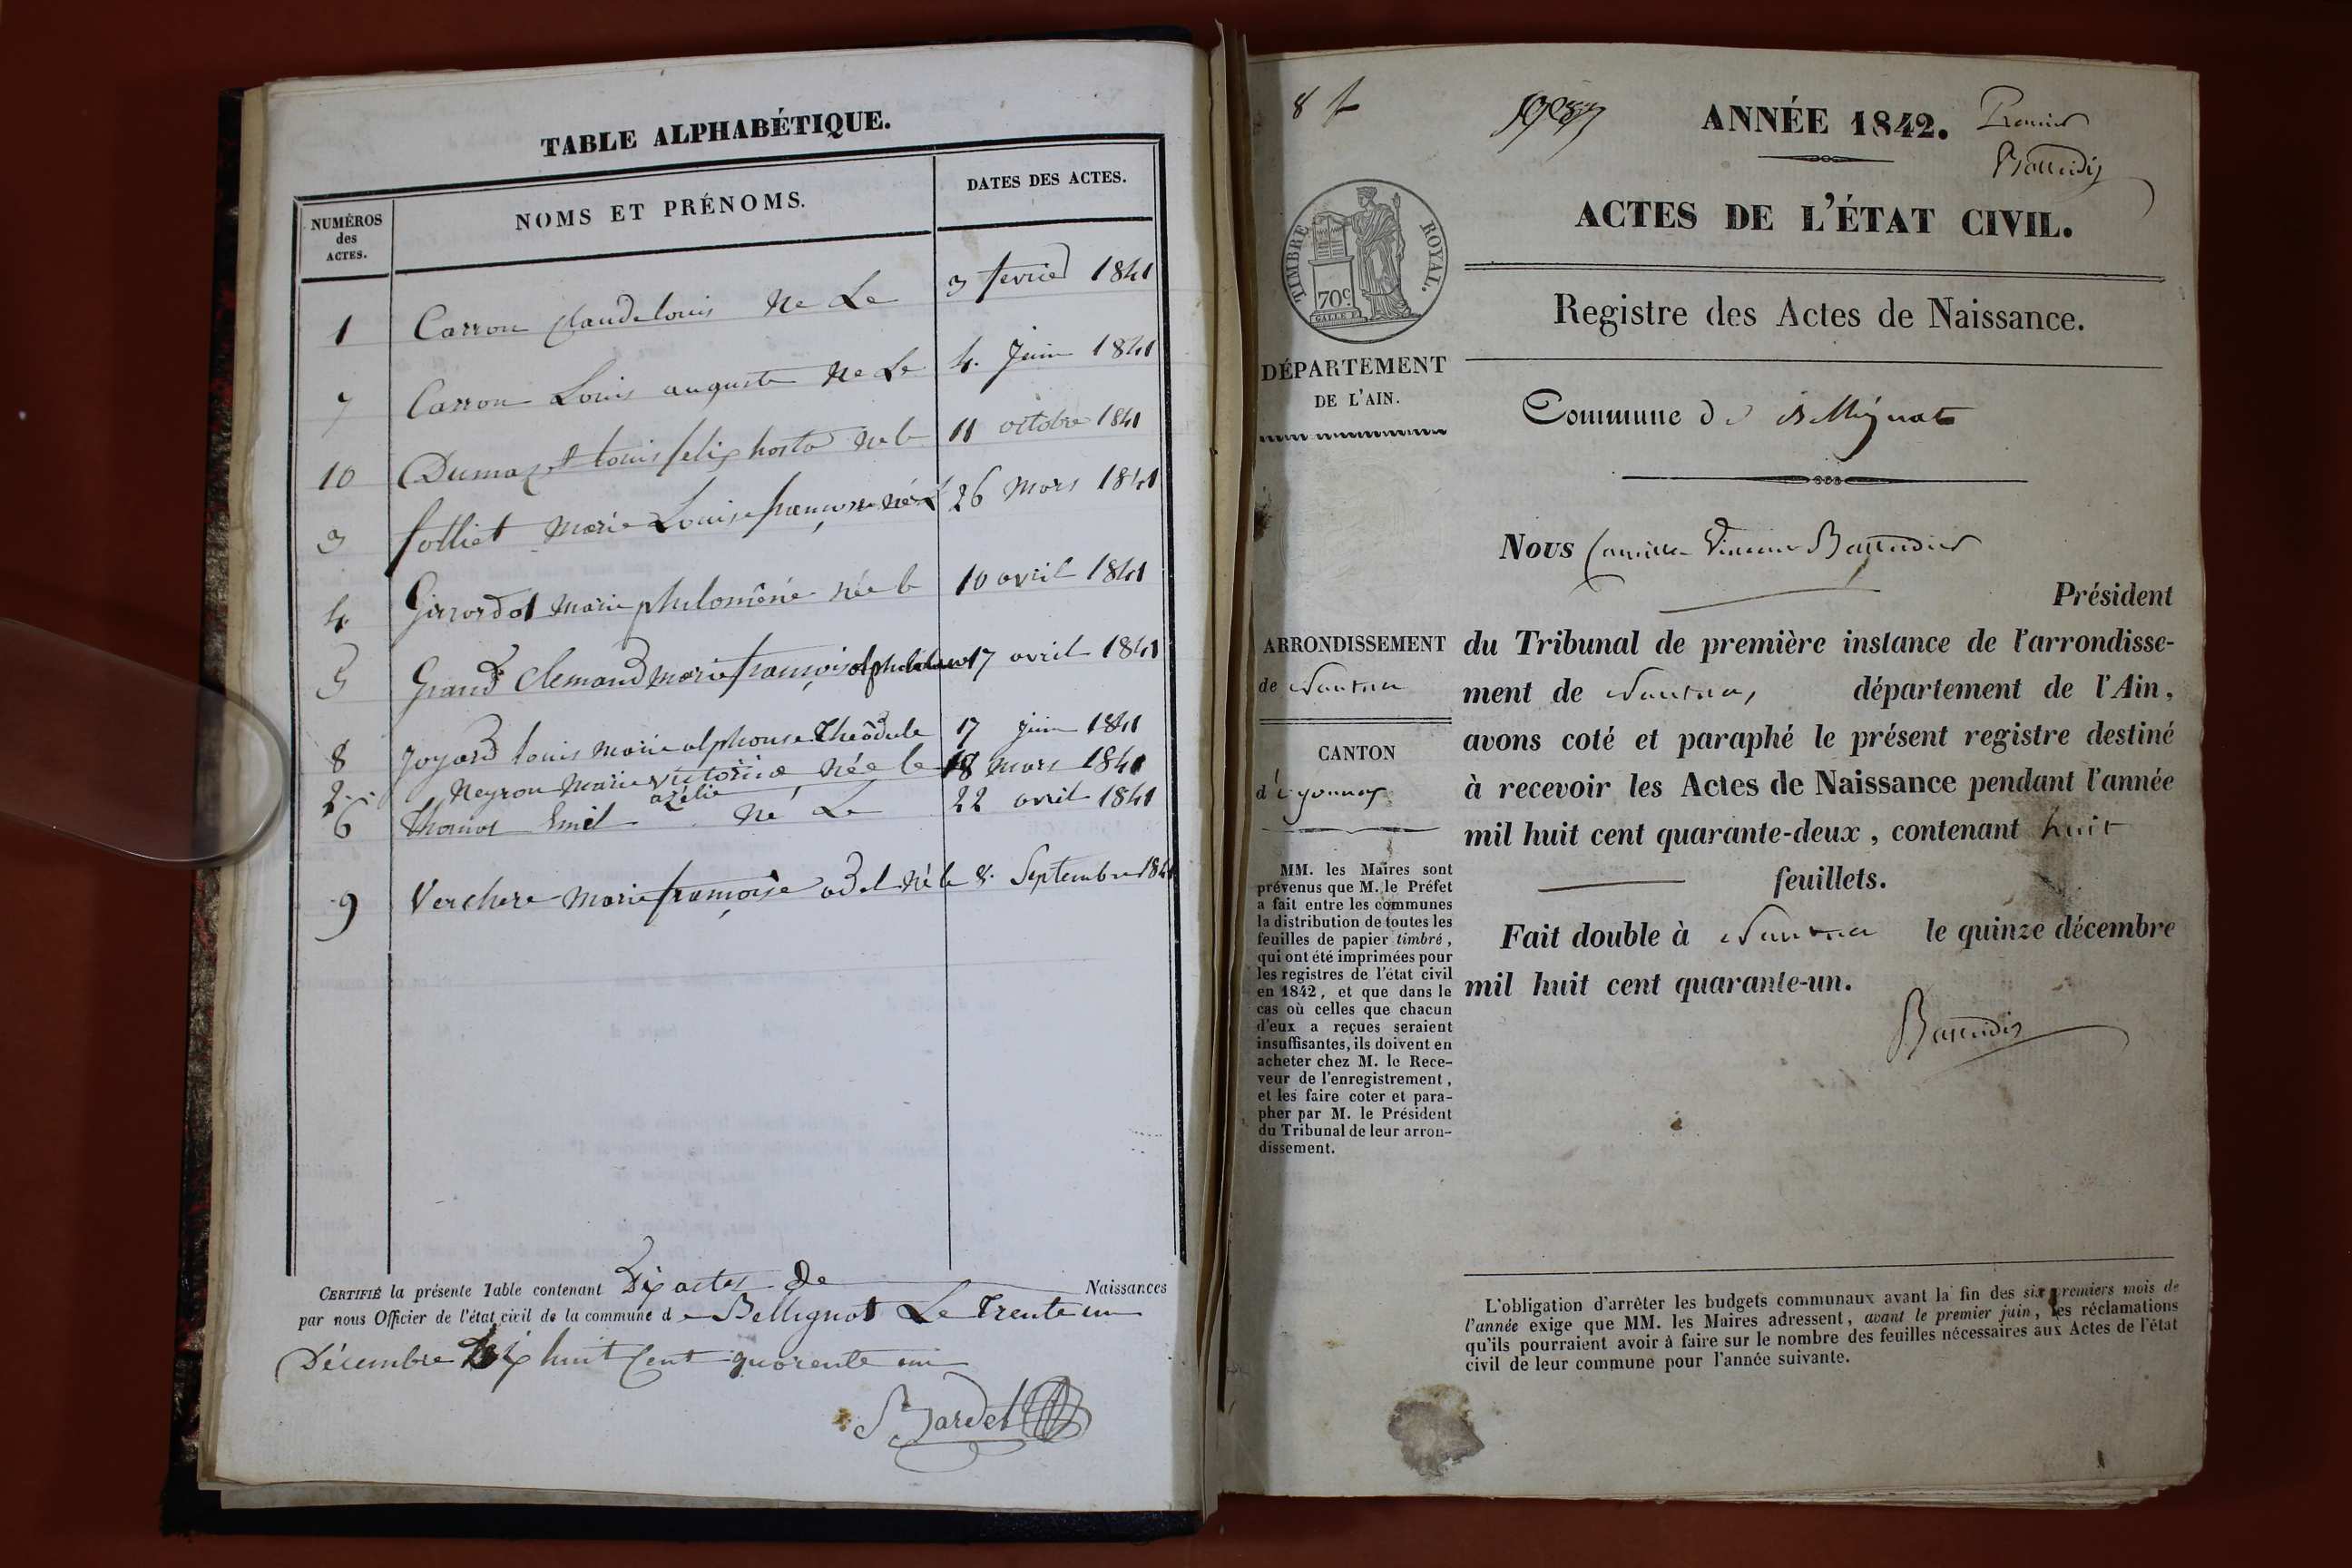 TABLE ALPHABÉTIQUE.
NUMÉROS des ACTES.
NOMS ET PRÉNOMS.
DATES DES ACTES.
1 Carron Claude Louis Né Le 3 fevrier 1841
7 Carron Louis auguste Ne Le 4. Juin 1841
10 Dumazet Louis felix né le 11 octobre 1841
3 folliet Marie Louise françoise née 26 Mars 1841
4 Girrardot Marie philoméne née le 10 avril 1841
5 Grand Clemand Marie françois 17 avril 1841
8 Joyard Louis Marie alphonse Théodule 17 Juin 1841
2 Neyron Marie victorine née le 18 Mars 1841
azélie
6 Thomas Emil né Le 22 avril 1841
9 Verchere Marie françoise adel né le 8. Septembre 1841
CERTIFIÉ la présente Table contenant Dix actes de Naissances
par nous Officier de l'état civil de la commune de Bellignat Le Trente un
Décembre Dix huit Cent quarente un
Bardet
8 f
ANNÉE 1842.
Premier
Baudin
ACTES DE L'ÉTAT CIVIL.
TIMBRE ROYAL.
70c
Registre des Actes de Naissance.
DÉPARTEMENT
DE L'AIN.
Commune de Bellignat
Nous Camille Vincent
Président
ARRONDISSEMENT
de Nantua
CANTON
d'Oyonnax
du Tribunal de première instance de l'arrondisse-
ment de Nantua, département de l'Ain,
avons coté et paraphé le présent registre destiné
à recevoir les Actes de Naissance pendant l'année
mil huit cent quarante-deux, contenant huit
feuillets.
Fait double à Nantua le quinze décembre
mil huit cent quarante-un.
MM. les Maires sont
prévenus que M. le Préfet
a fait entre les communes
la distribution de toutes les
feuilles de papier timbré,
qui ont été imprimées pour
les registres de l'état civil
en 1842, et que dans le
cas où celles que chacun
d'eux a reçues seraient
insuffisantes, ils doivent en
acheter chez M. le Rece-
veur de l'enregistrement,
et les faire coter et para-
pher par M. le Président
du Tribunal de leur arron-
dissement.
L'obligation d'arrêter les budgets communaux avant la fin des six premiers mois de
l'année exige que MM. les Maires adressent, avant le premier juin, les réclamations
qu'ils pourraient avoir à faire sur le nombre des feuilles nécessaires aux Actes de l'état
civil de leur commune pour l'année suivante.